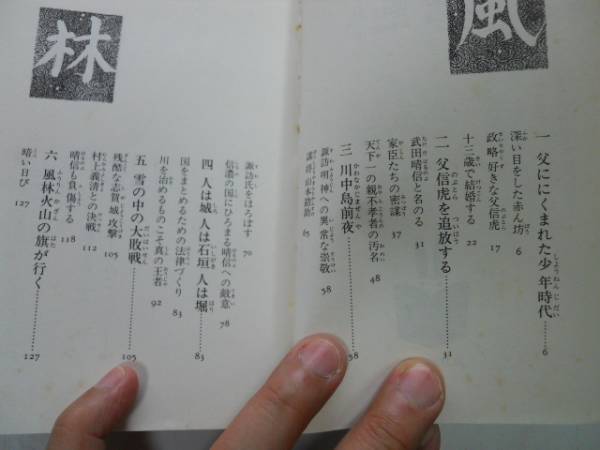 風
一 父ににくまれた少年時代 6
深い目をした赤ん坊 6
政略好きな父信虎 17
十三歳で結婚する 22
二 父信虎を追放する 31
武田晴信と名のる 31
家臣たちの密謀 37
天下一の親不孝者の汚名 48
三 川中島前夜 58
諏訪明神への異常な崇敬 58
65
諏訪氏をほろぼす 70
信濃の国にひろまる晴信への敵意 78
林
四 人は城 人は石垣 人は堀 83
国をまとめるための法律づくり 83
川を治めるものこそ真の王者 92
五 雪の中の大敗戦 105
残酷な志賀城攻撃 105
村上義清との決戦 112
晴信も負傷する 118
六 風林火山の旗が行く 127
暗い日び 127